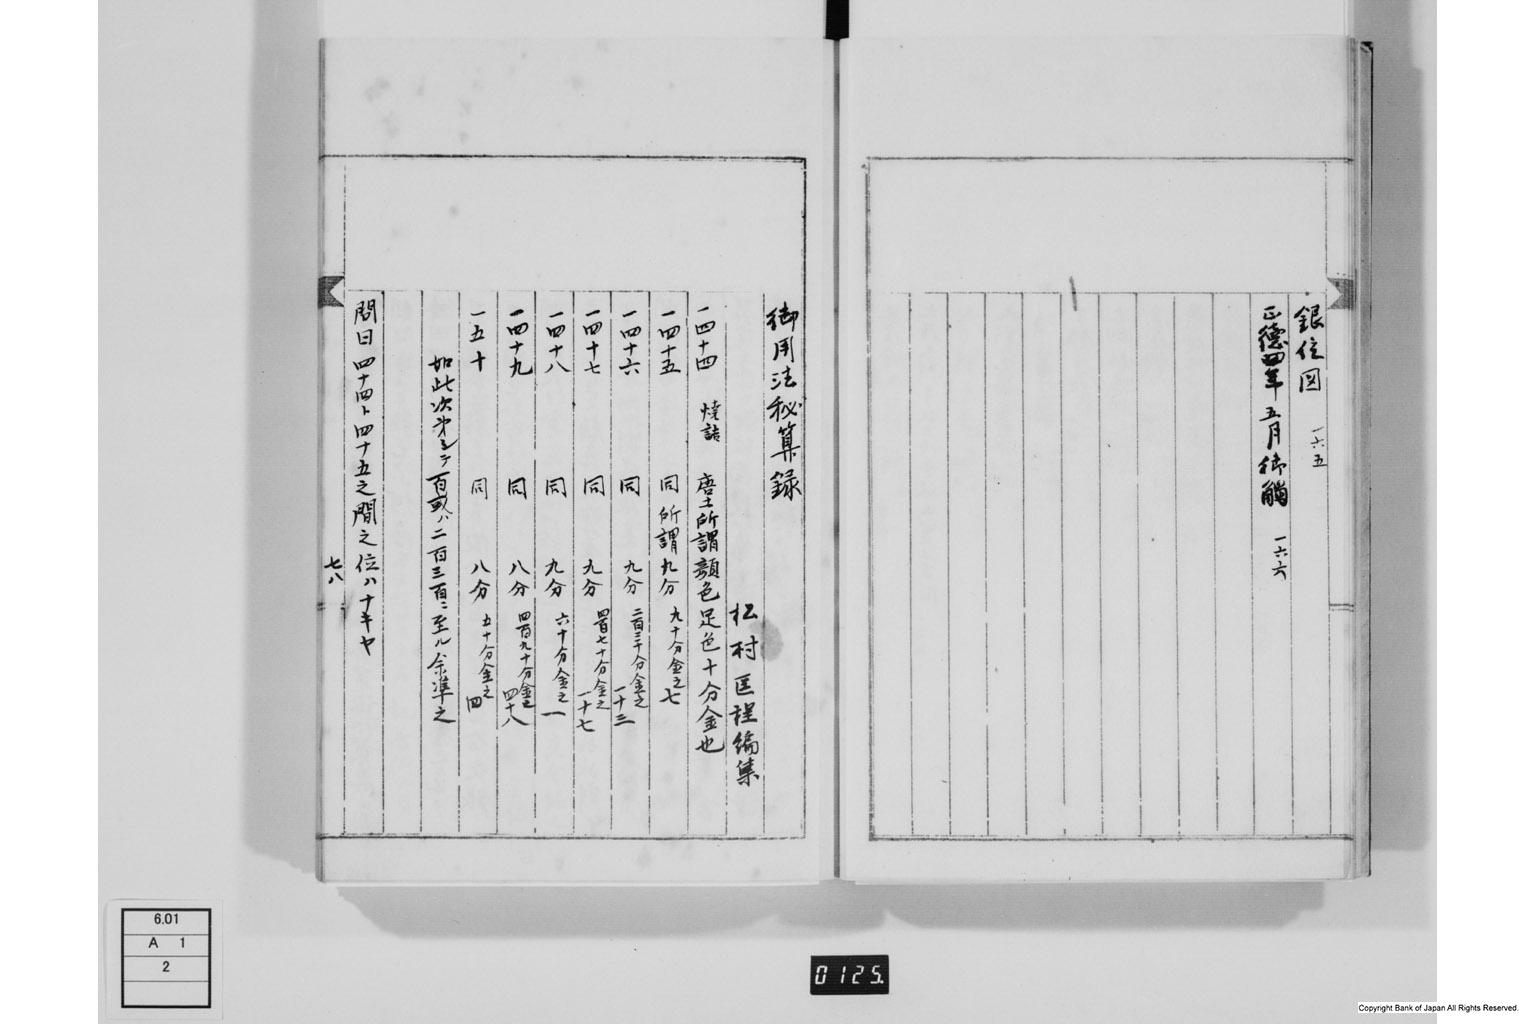 銀位図 一六五
正德四年五月御觸 一六六
御用法秘算録
松村匡程編集
一四十四 焼詰 唐土所謂顔色足色十分金也
一四十五 同所謂九分 九十分金之七
一四十六 同 九分 二百三十分金之一十三
一四十七 同 九分 四百七十分金之一十七
一四十八 同 九分 六十分金之一
一四十九 同 八分 四百九十分金之四十八
一五十 同 八分 五十分金之四
如此次第シテ百或ハ二百三百ニ至ル余準之
問曰四十四ト四十五之間之位ハナキヤ
七八
6.01
A 1
2
0125.
Copyright Bank of Japan All Rights Reserved.